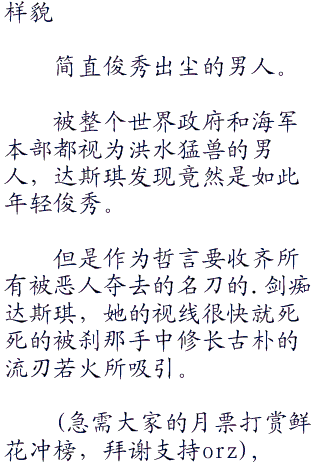 样貌
简直俊秀出尘的男人。
被整个世界政府和海军
本部都视为洪水猛兽的男
人，达斯琪发现竟然是如此
年轻俊秀。
但是作为哲言要收齐所
有被恶人夺去的名刀的.剑痴
达斯琪，她的视线很快就死
死的被刹那手中修长古朴的
流刃若火所吸引。
(急需大家的月票打赏鲜
花冲榜，拜谢支持orz)，